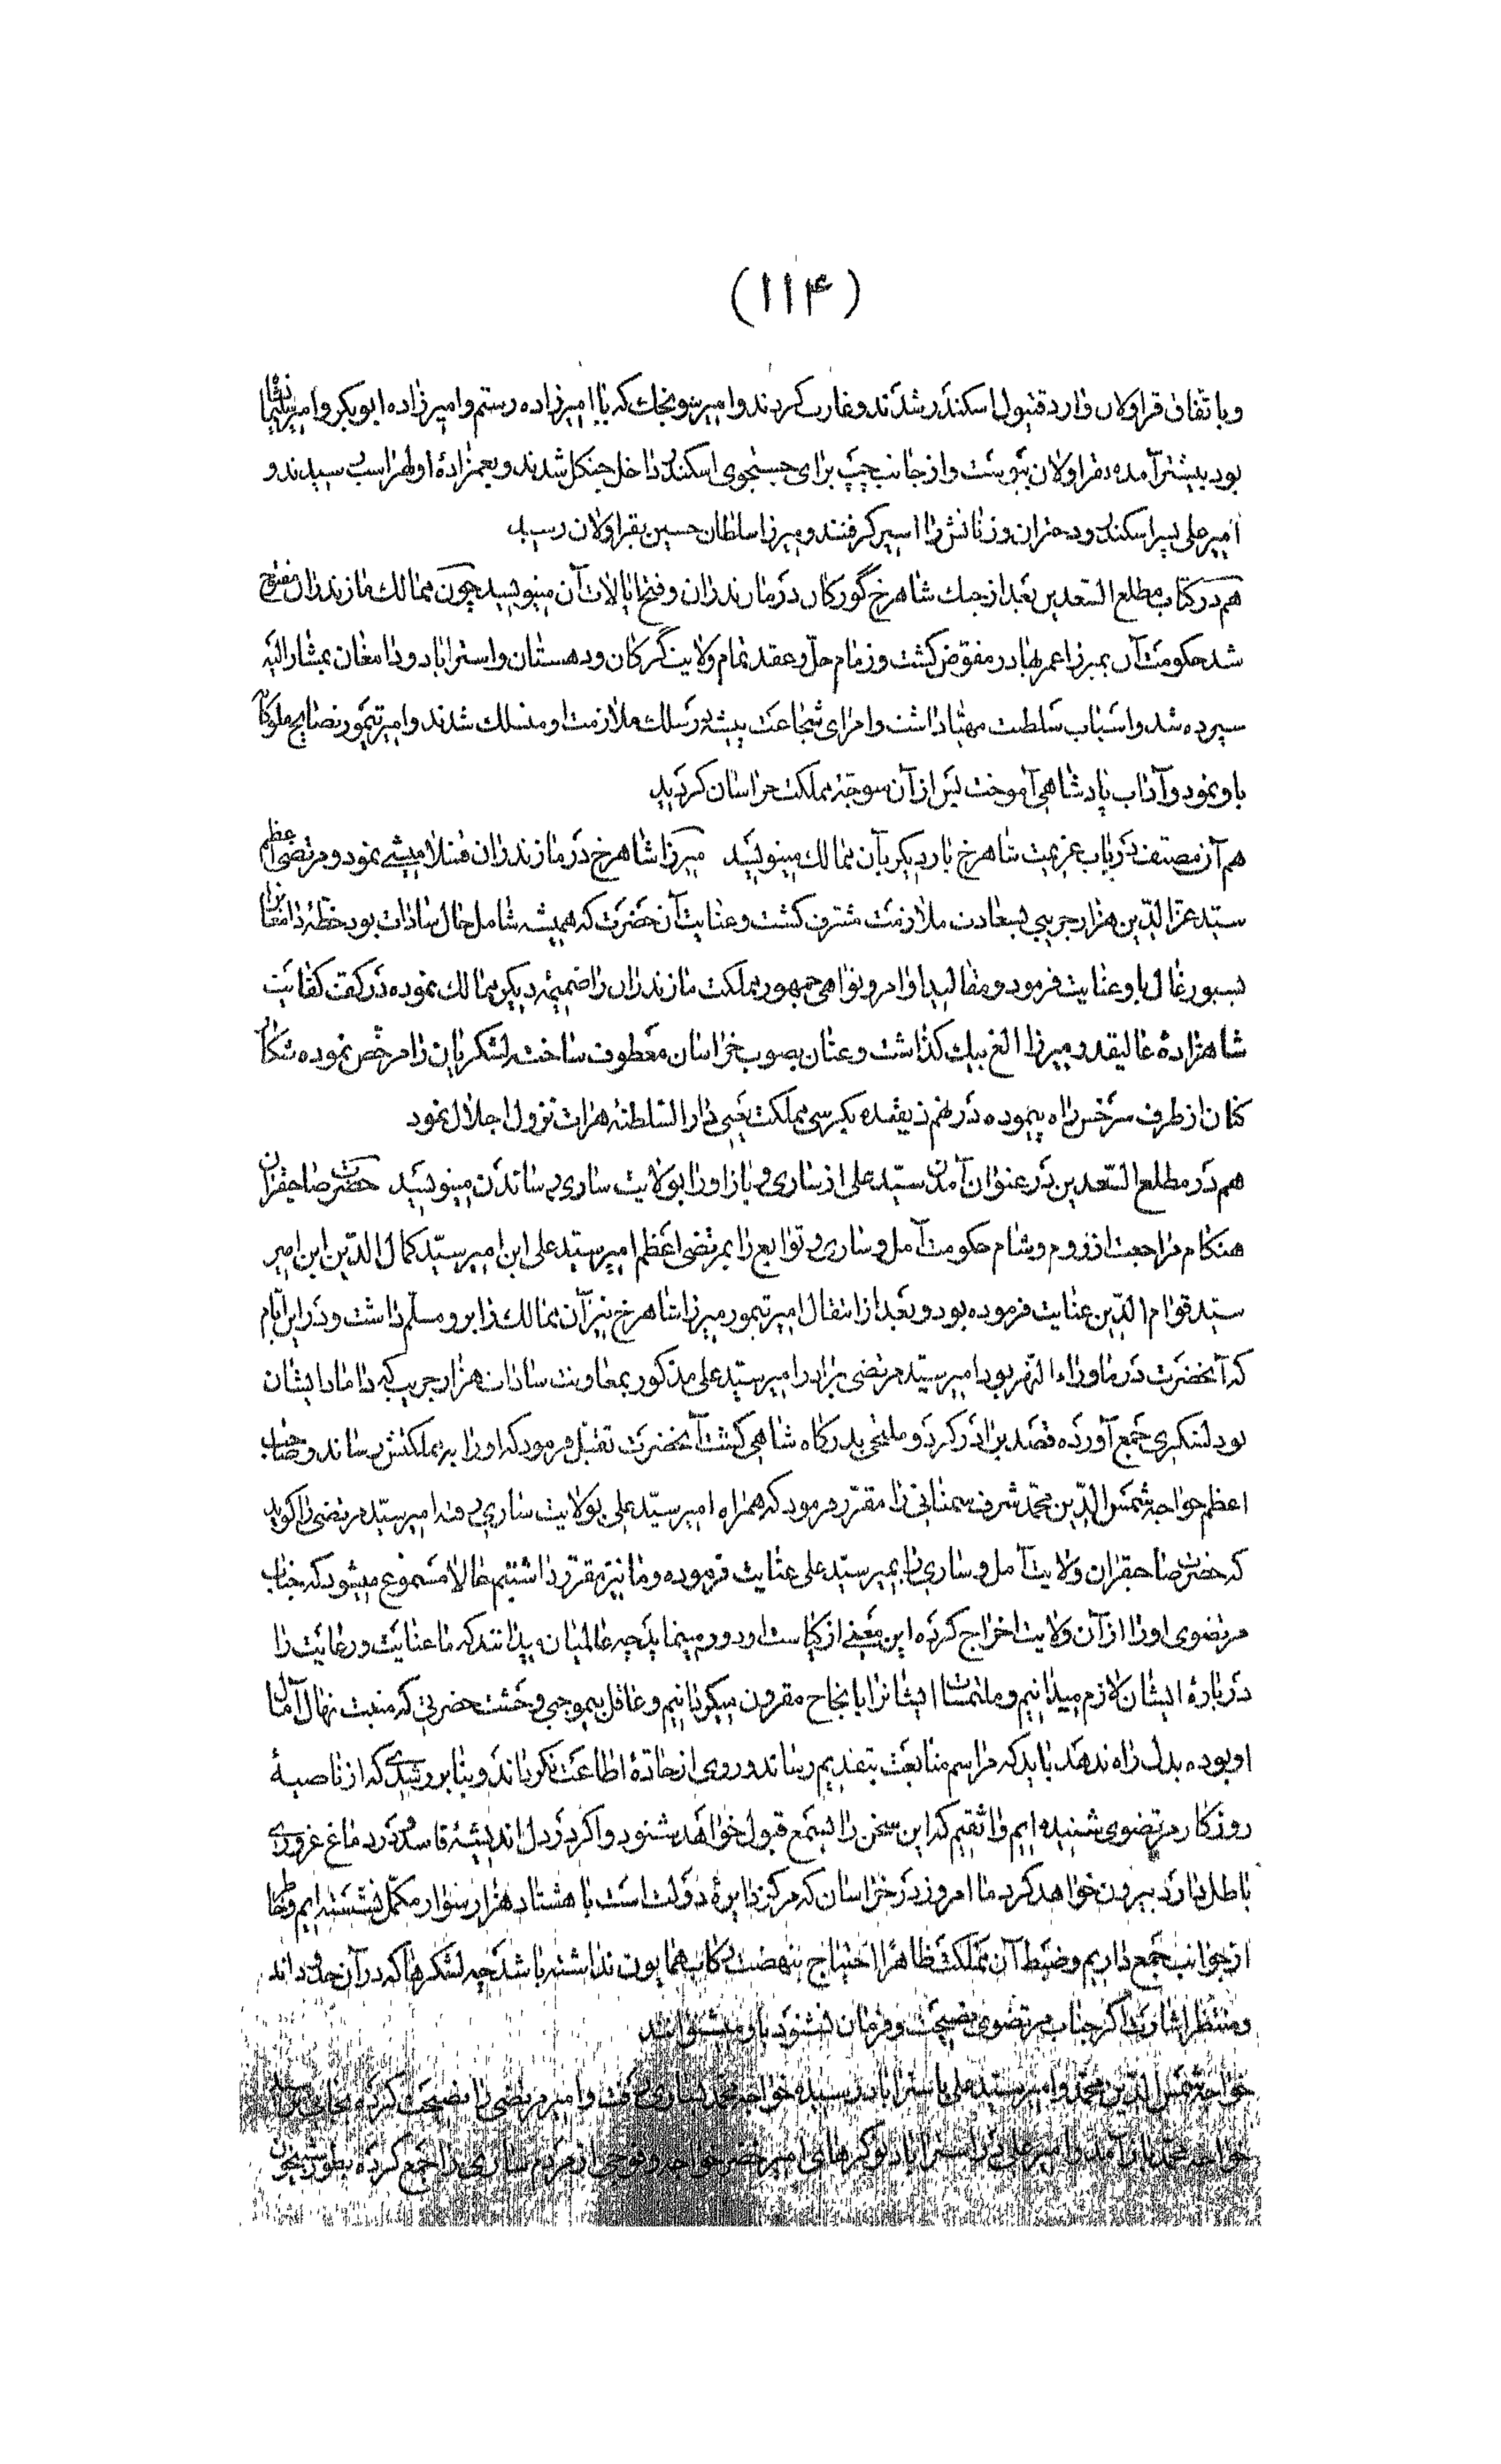 (۱۱۴)
و باتفاق قراولان وارد قیتول اسکندر شدند و غارت کردند و امیر سونجک که با امیرزاده رستم و امیرزاده ابوبکر و امیر سلیمانشاه
بود پیشتر آمده بقراولان پیوست و از جانب چپ برای جستجوی اسکندر داخل جنگل شدند و بعمزادهٔ او لهراسب رسیدند و
امیر علی پسر اسکندر و دختران و زنانش را اسیر گرفتند و میرزا سلطان حسین بقراولان رسید
هم در کتاب مطلع السعدین بعد از جنک شاهرخ گورکان در مازندران و فتح ایالات آن مینویسد چون ممالک مازندران مفتوح
شد حکومت آن بمیرزا عمر بهادر مفوض کشت و زمام حلّ و عقد تمام ولایت گرکان و دهستان و استراباد و دامغان بمشار الیه
سپرده شد و اسباب سلطنت مهیّا داشت و امرای شجاعت پیشه در سلک ملازمت او منسلک شدند و امیر تیمور نصایح ملوکانه
باو نمود و آداب پادشاهی آموخت پس از آن متوجّه مملکت خراسان کردید
هم آن مصنف در باب عزیمت شاهرخ بار دیکر بآن ممالک مینویسد میرزا شاهرخ در مازندران قشلامیشی نمود و مرتضی اعظم
سید عز الدین هزار جریبی بسعادت ملازمت مشرف کشت و عنایت آن حضرت که همیشه شامل حال سادات بود خطهٔ دامغان را
بسیورغال باو عنایت فرمود و مقالید اوامر و نواهی جمهور مملکت مازندران را ضمیمهٔ دیکر ممالک نموده در کف کفایت
شاهزادهٔ عالیقدر میرزا الغ بیک کذاشت و عنان بصوب خراسان معطوف ساخت لشکریان را مرخّص نموده شکار
کنان از طرف سرخس راه پیموده در نهم ذیقعده بکرسی مملکت یعنی دار السلطنهٔ هرات نزول اجلال نمود
هم در مطلع السّعدین در عنوان آمدن سیّد علی از ساری و باز او را بولایت ساری رساندن مینویسد حضرت صاحبقران
هنکام مراجعت از روم و شام حکومت آمل و ساری و توابع را بمرتضی اعظم امیر سید علی ابن امیر سیّد کمال الدّین ابن امیر
سید قوام الدّین عنایت فرموده بود و بعد از انتقال امیر تیمور میرزا شاهرخ نیز آن ممالک را بر او مسلّم داشت و در این ایّام
که آنحضرت در ماوراء النهر بود امیر سید مرتضی برادر امیر سید علی مذکور بمعاونت سادات هزار جریب که داماد ایشان
بود لشکری جمع آورده قصد برادر کرد و ملتجی بدرکاه شاهی کشت آنحضرت تقبّل فرمود که او را به مملکتش رساند و صاحب
اعظم خواجه شمس الدین محمّد شرف سمنانی را مقرّر فرمود که همراه امیر سیّد علی بولایت ساری رفته امیر سیّد مرتضی را کوید
که حضرت صاحبقران ولایت آمل و ساری را بمیر سید علی عنایت فرموده و ما نیز مقرّر داشتیم حالا مسموع میشود که جناب
مرتضوی او را از آن ولایت اخراج کرده این معنی از کیاست او دور مینماید چه عالمیان بدانند که ما عنایت و رعایت را
در بارهٔ ایشان لازم میدانیم و ملتمسات ایشانرا بانجاح مقرون میکردانیم و عاقل بیموجبی وحشت حضرتی که منبت نهال آمال
او بوده بدل راه ندهد باید که مراسم متابعت بتقدیم رساند و روی از جادّهٔ اطاعت نکرداند و بنا بر رشدی که از ناصیهٔ
روزکار مرتضوی شنیده ایم واثقیم که این سخن را بسمع قبول خواهد شنود و اکر در دل اندیشهٔ فاسد و در دماغ غروری
باطل دارد بیرون خواهد کرد ما امروز در خراسان که مرکز دایرهٔ دولت است با هشتاد هزار سوار مکمّل نشسته ایم و خاطر
از جوانب جمع داریم و ضبط آن مملکت ظاهرًا احتیاج بنهضت رکاب همایون نداشته باشد چه لشکرها که در آن حدوداند
و منتظر اشارت اکر جناب مرتضوی نصیحت و فرمان نشنود باو میشنوانند
خواجه شمس الدین محمد و امیر سید علی باستراباد رسیده خواجه محمد بساری رفت و امیر مرتضی را نصیحت کرده
خواجه محمد باز آمد و امیر علی در استراباد نوکرهای امیر خضر خواجه و فوجی از مردم ساری را جمع کرده بطور شبیخون